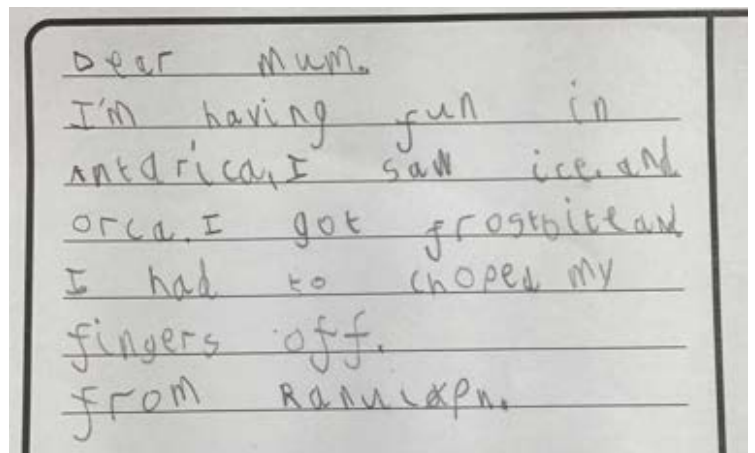 Dear Mum.
I'm having fun in
Antarica, I saw ice. and
orca. I got frostbite and
I had to choped my
fingers off.
from